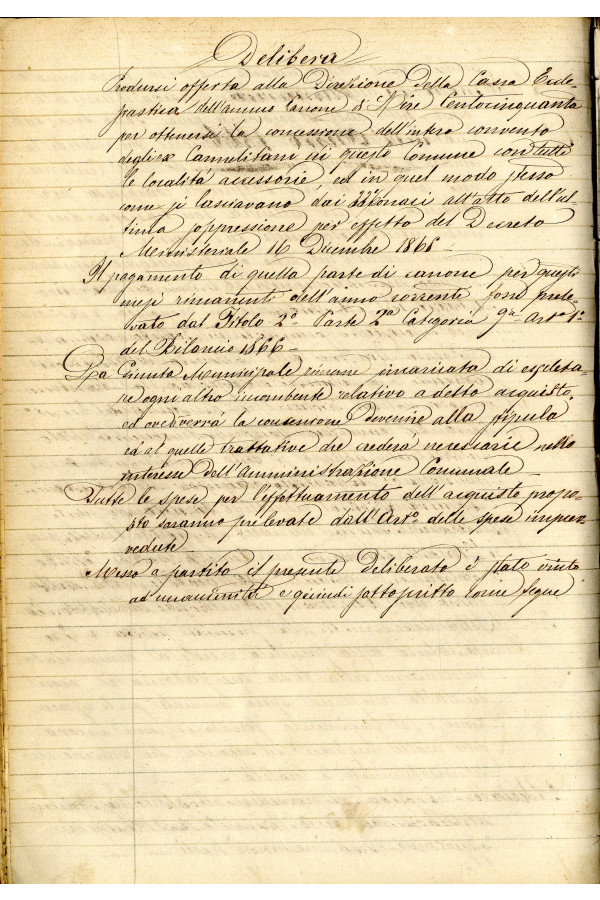 Delibera
Prodursi offerta alla Direzione della Cassa Eccle-
siastica dell'annuo Canone di Lire Centocinquanta
per ottenersi la concessione dell'intero convento
degli ex Carmelitani di questo Comune con tutte
le località accessorie, ed in quel modo stesso
come si lasciavano dai Monaci all'atto dell'ul-
tima soppressione per effetto del Decreto
Ministeriale 16 Dicembre 1865 -
Il pagamento di quella parte di canone per questi
mesi rimanenti dell'anno corrente sono prele-
vato dal Titolo 2º Parte 2ª Categoria 9ª Artº 1º
del Bilancio 1866 -
La Giunta Municipale rimane incaricata di espleta-
re ogni altro incombente relativo a detto acquisto,
ed avverrà la concessione devenire alla stipula
ed a quelle trattative che crederà necessarie nello
interesse dell'Amministrazione Comunale
Tutte le spese per l'effettuamento dell'acquisto propo-
sto saranno prelevate dall'Artº delle spese impre-
vedute
Messo a partito il presente deliberato è stato vinto
ad unanimità e quindi sottoscritto come segue